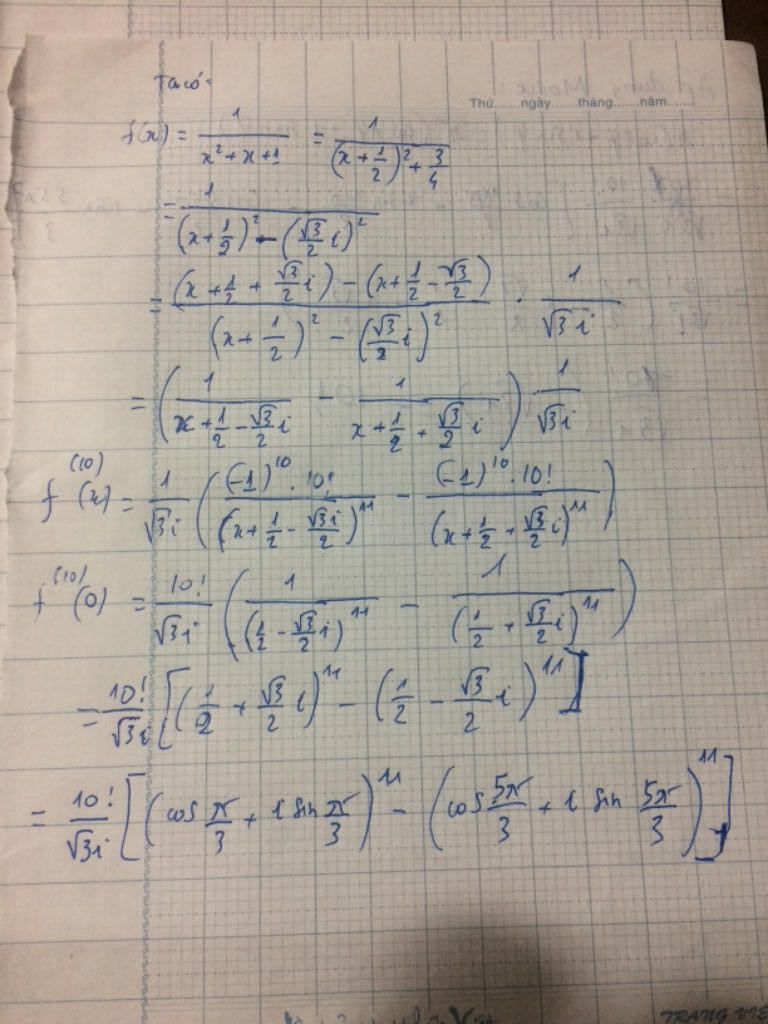 Ta có:
Thứ......ngày......tháng......năm......
f(x) = 1/(x² + x + 1) = 1/((x + 1/2)² + 3/4)
= 1/((x + 1/2)² - (√3/2 i)²)
= ((x + 1/2 + √3/2 i) - (x + 1/2 - √3/2))/((x + 1/2)² - (√3/2 i)²) · 1/(√3 i)
= (1/(x + 1/2 - √3/2 i) - 1/(x + 1/2 + √3/2 i)) · 1/(√3 i)
f⁽¹⁰⁾(x) = 1/(√3 i) ((-1)¹⁰ · 10!/(x + 1/2 - √3i/2)¹¹ - (-1)¹⁰ · 10!/(x + 1/2 + √3/2 i)¹¹)
f⁽¹⁰⁾(0) = 10!/(√3 i) (1/(1/2 - √3/2 i)¹¹ - 1/(1/2 + √3/2 i)¹¹)
= 10!/(√3 i) [(1/2 + √3/2 i)¹¹ - (1/2 - √3/2 i)¹¹]
= 10!/(√3 i) [(cos π/3 + i sin π/3)¹¹ - (cos 5π/3 + i sin 5π/3)¹¹]